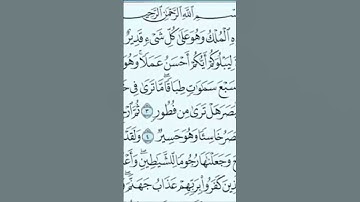 سْمِ ٱللَّهِ ٱلرَّحْمَٰنِ ٱلرَّحِيمِ
ٱلْمُلْكُ وَهُوَ عَلَىٰ كُلِّ شَىْءٍ قَدِيرٌ
لِيَبْلُوَكُمْ أَيُّكُمْ أَحْسَنُ عَمَلًا ۚ وَهُوَ
سَبْعَ سَمَٰوَٰتٍ طِبَاقًا ۖ مَّا تَرَىٰ فِى
صَرَ هَلْ تَرَىٰ مِن فُطُورٍ ٣ ثُمَّ ٱرْ
صَرُ خَاسِئًا وَهُوَ حَسِيرٌ ٤ وَلَقَدْ
حَ وَجَعَلْنَٰهَا رُجُومًا لِّلشَّيَٰطِينِ ۖ وَأَعْ
ذِينَ كَفَرُوا۟ بِرَبِّهِمْ عَذَابُ جَهَنَّمَ ۖ